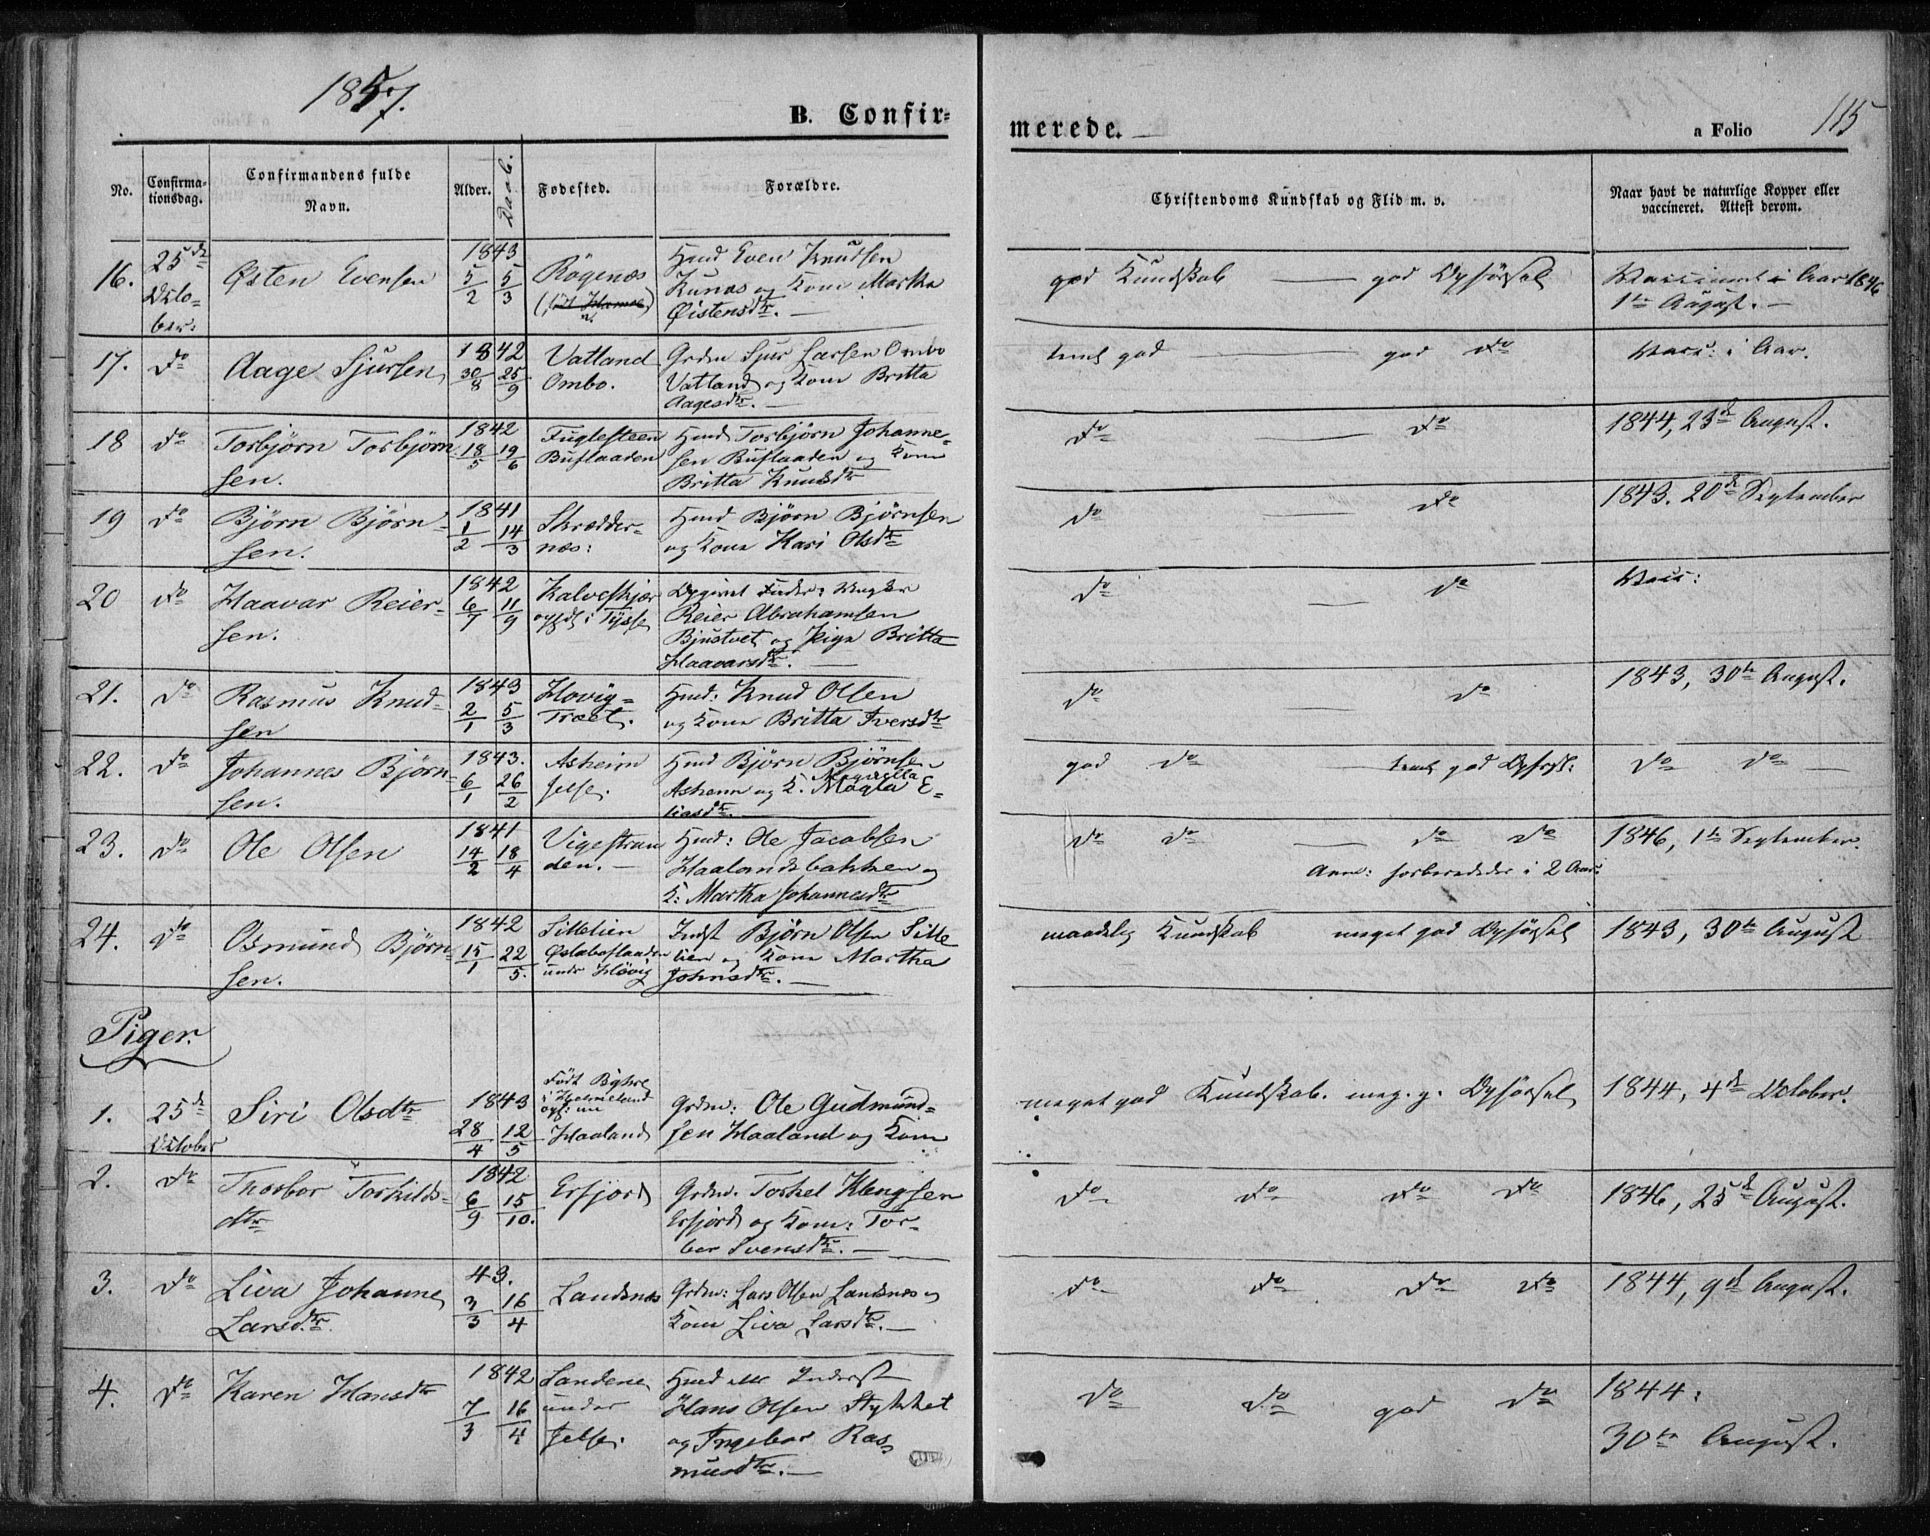 1857.
B. Confir-
merede.
a Folio 115
No.
Confirma-
tionsdag.
Confirmandens fulde
Navn.
Alder.
Daab.
Fødested.
Forældre.
Christendoms Kundskab og Flid m. v.
Naar havt de naturlige Kopper eller
vaccineret. Attest derom.
16. 25de Octo- ber: Østen Evensen 1843 5/2 5/3 Røgenæs
Hmd Even Knudsen
Kunæs og Kone Martha
Øistensdtr. —
god Kundskab — god Opførsel
Vaccineret i Aar 1846
1te August. —
17. do Aage Sjursen 1842 30/8 25/9 Vatland
Ombo.
Grdm Sjur Larsen Ombo
Vatland og Kone Britta
Aagesdtr. —
teml god — god do
Vacc: i Aar.
18 do Torbjørn Torbjørn
sen. 1842 18/5 19/6 Fuglesteen
Buflaaden
Hmd Torbjørn Johanne-
sen Buflaaden og Kone
Britta Knudsdtr
do — do
1844, 23de August.
19 do Bjørn Bjørn-
sen. 1841 1/2 14/3 Skrædder-
næs:
Hmd Bjørn Bjørnsen
og Kone Kari Olsdtr
do — do
1843. 20de September
20 do Haavar Reier-
sen. 1842 6/7 11/9 Kalveskjær
opfdt i Tysse
Opgivet Fader: Ungkr
Reier Abrahamsen
Bjustvet og Pige Britta
Haavarsdtr. —
do — do
Vacc:
21. do Rasmus Knud-
sen 1843 2/1 5/3 Hovig-
Træet.
Hmd: Knud Olsen
og Kone Britta Iversdtr
do — do
1843, 30te August.
22. do Johannes Bjørn-
sen. 1843. 6/1 26/2 Asheim
Jelse.
Hmd Bjørn Bjørnsen
Asheim og K. Magla E-
liasdtr. —
god do — temt god Opførs:
do do —
23. do Ole Olsen 1841 14/2 18/4 Vigestran
den. —
Hmd: Ole Jacobsen
Haalandsbakken og
K: Martha Johannesdtr
do do — do do
Anm: forberededes i 2 Aar:
1846, 1te September.
24. do Osmund Bjørn-
sen. 1842 15/1 22/5. Sittelien
under Høvig
Indst Bjørn Olsen Sitte
lien og Kone Martha
Johnsdtr. —
maadelig Kundskab meget god Opførsel
1843, 30te August
Piger.
1. 25de October Siri Olsdtr 1843 28/4 12/5 Født
i Hjelmeland
Haaland
Grdm: Ole Gudmund-
sen Haaland og Kone
meget god Kundskab. meg. g. Opførsel
1844, 4de October.
2. do Thorbor Torkilds-
dtr 1842 6/9 15/10. Erfjord
Grdm. Torkel Klengsen
Erfjord og Kone: Tor-
bor Svensdtr. —
do do do do
1846, 25de August.
3. do Liva Johanne
Larsdtr. 43. 3/3 16/4 Landsnæs
Grdm: Lars Olsen Landsnæs og
Kone Liva Larsdtr. —
do do do do
1844, 9de August.
4. do Karen Hansdtr 1842 7/3 16/4 Sandene
under
Jelse.
Hmd ell Inderst
Hans Olsen Stykket
og Ingebor Ras-
musdtr. —
do do god do
1844:
30te August.